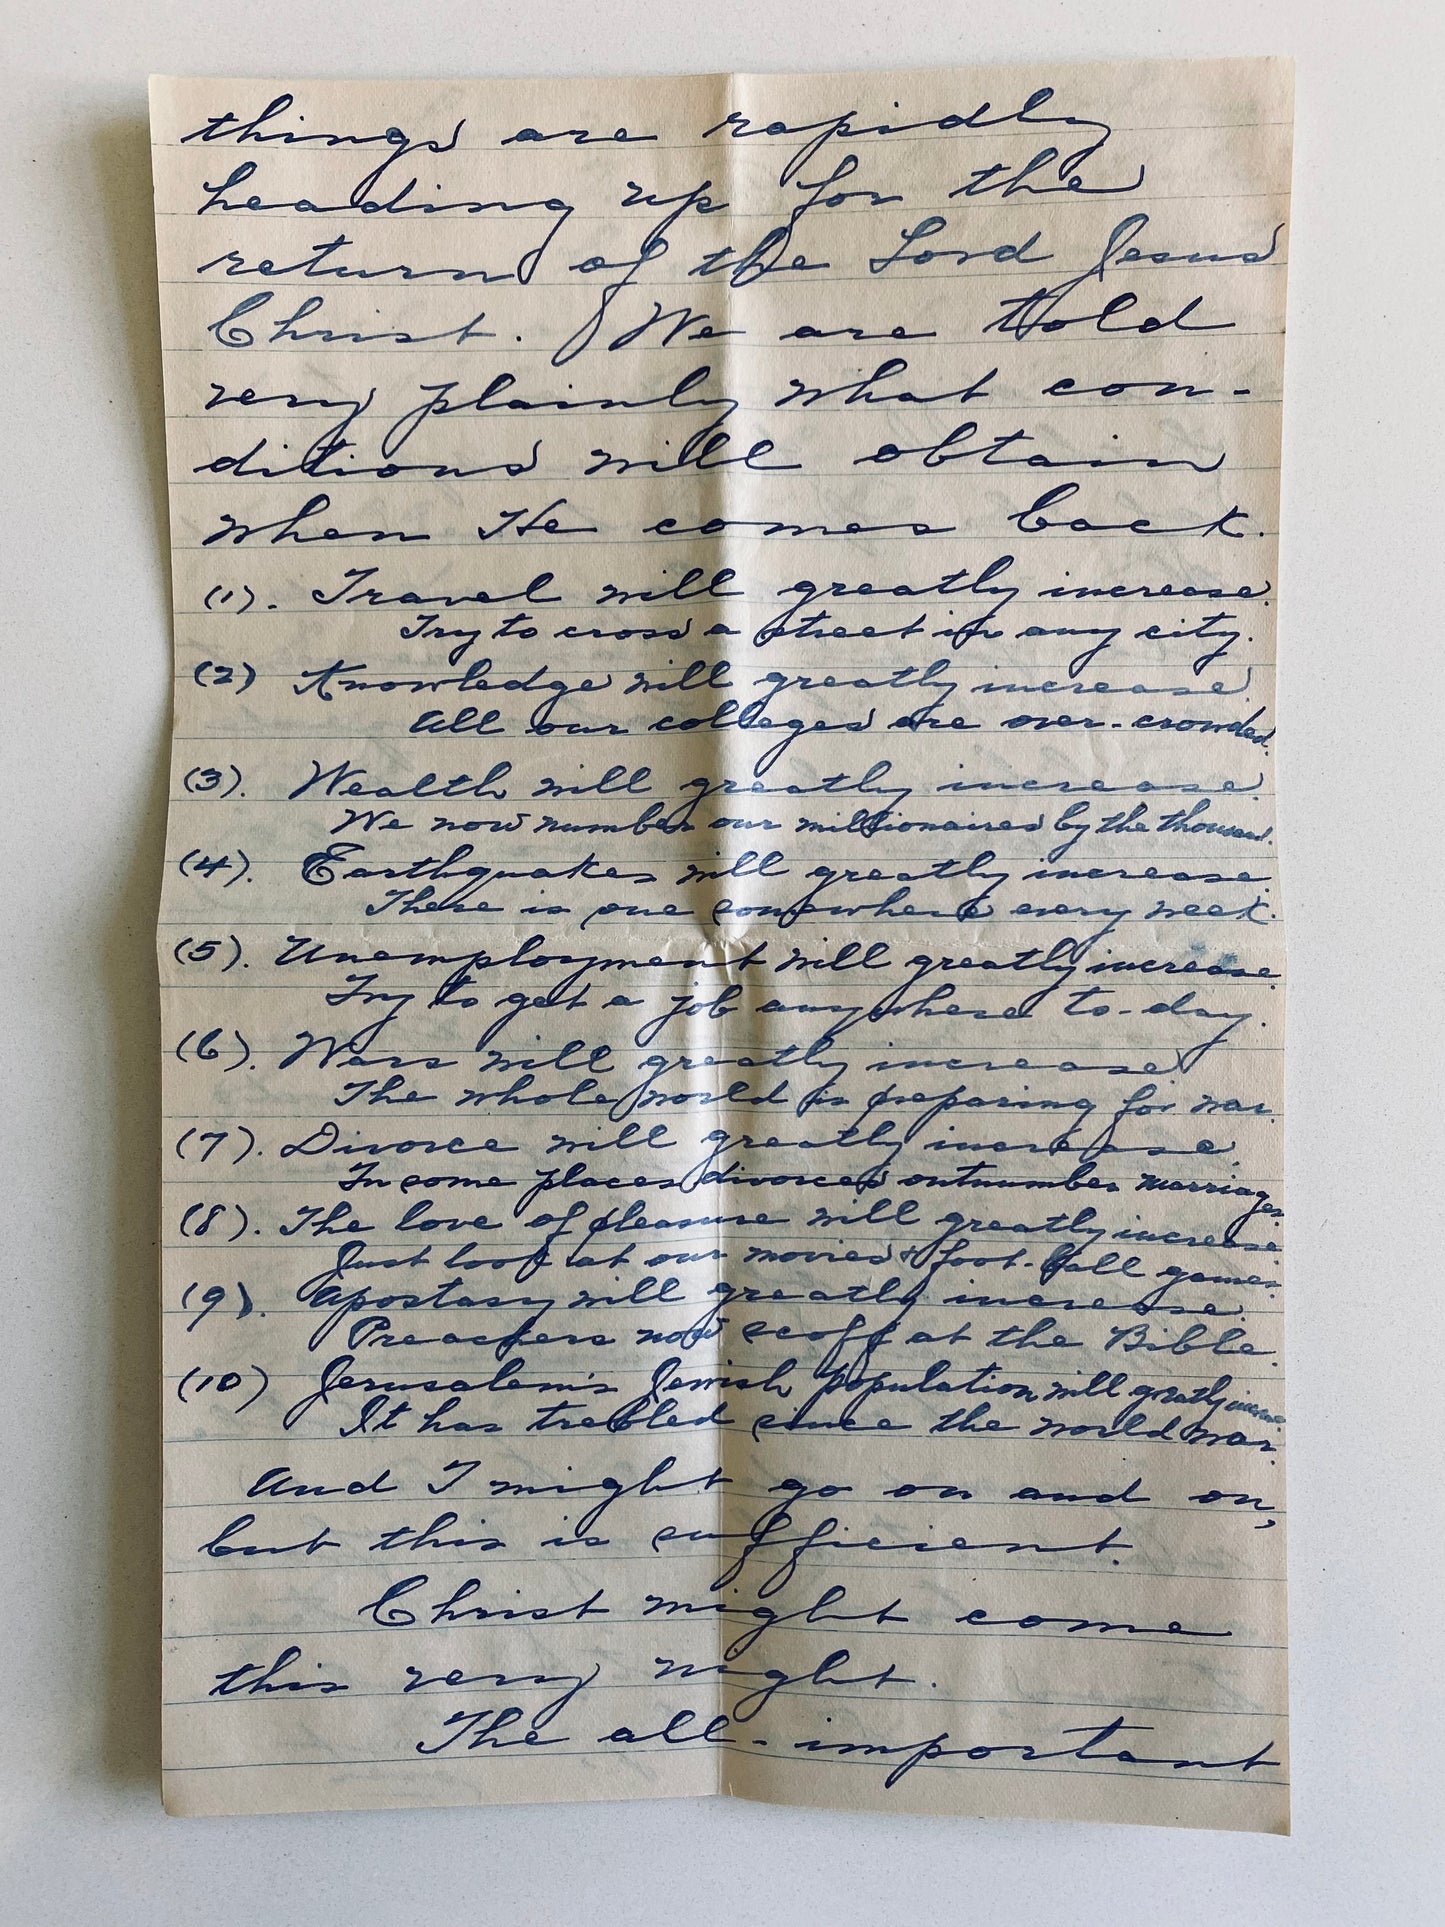 things are rapidly
heading up for the
return of the Lord Jesus
Christ. We are told
very plainly what con-
ditions will obtain
when He comes back.
(1). Travel will greatly increase.
Try to cross a street in any city.
(2) Knowledge will greatly increase.
All our colleges are over-crowded.
(3). Wealth will greatly increase.
We now number our millionaires by the thousand.
(4). Earthquakes will greatly increase.
There is one somewhere every week.
(5). Unemployment will greatly increase.
Try to get a job anywhere to-day.
(6). Wars will greatly increase
The whole world is preparing for war.
(7). Divorce will greatly increase.
In some places divorces outnumber marriages.
(8). The love of pleasure will greatly increase
Just look at our movies & foot-ball games.
(9). Apostasy will greatly increase.
Preachers now scoff at the Bible.
(10) Jerusalem's Jewish population will greatly increase
It has trebled since the world war.
And I might go on and on,
but this is sufficient.
Christ might come
this very night.
The all-important